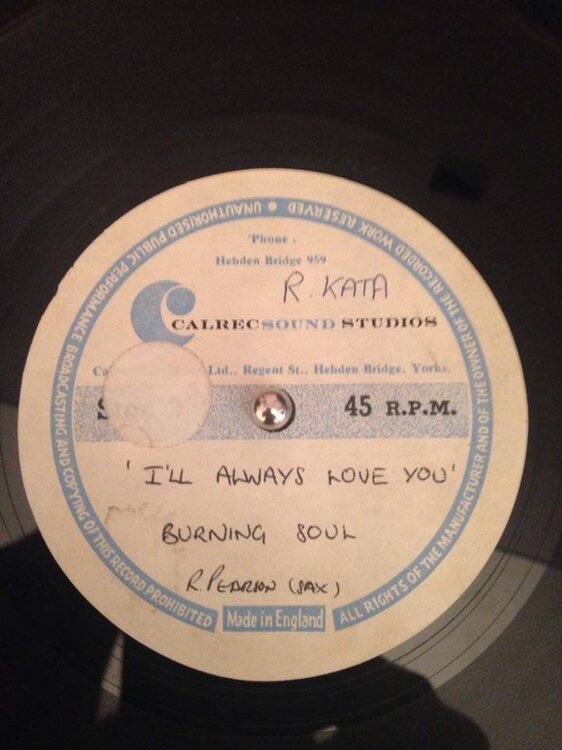 UNAUTHORISED PUBLIC PERFORMANCE BROADCASTING AND COPYING OF THIS RECORD PROHIBITED
ALL RIGHTS OF THE MANUFACTURER AND OF THE OWNER OF THE RECORDED WORK RESERVED
'Phone :
Hebden Bridge 959
R. KATA
CALRECSOUND STUDIOS
Ltd., Regent St., Hebden Bridge, Yorks.
45 R.P.M.
'I'LL ALWAYS LOVE YOU'
BURNING SOUL
R. PEARSON (SAX)
Made in England